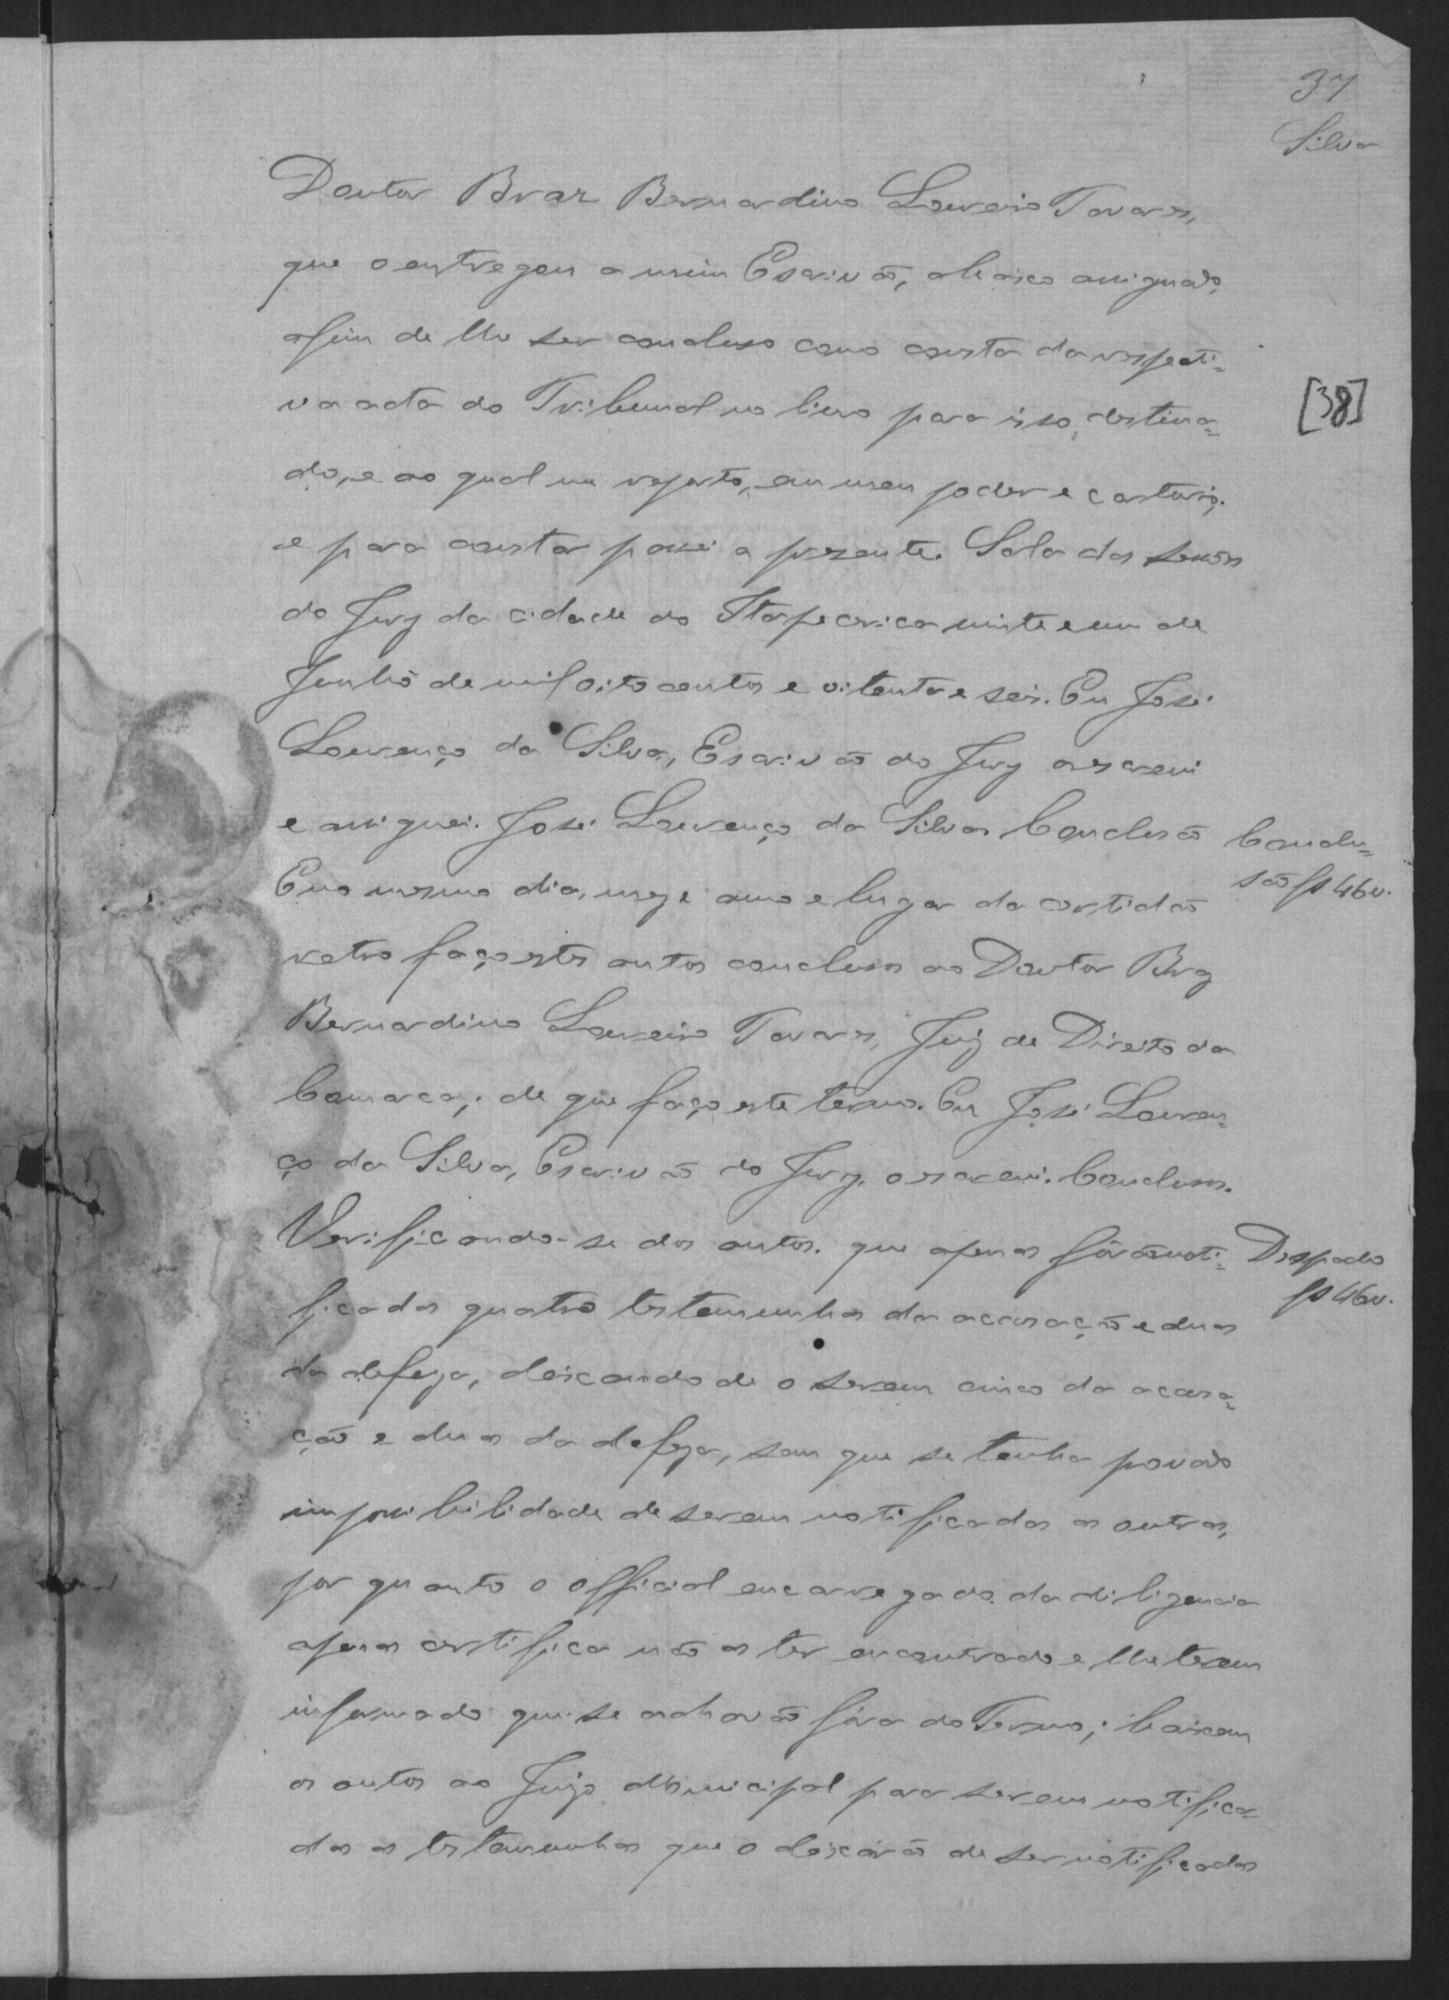 37
Silva
Doutor Braz Bernardino Loureiro Tavares,
que o entregou a mim Escrivão, abaixo assignado,
afim de lhe ser concluso como consta da respecti-
va acta do Tribunal no livro para isso destina-
do, e ao qual me reporto, em meu poder e cartorio,
e para constar passei a prezente. Sala das sessões
do Jury da cidade do Itapecerica vinte e um de
Junho de mil oito centos e oitenta e seis. Eu José
Lourenço da Silva, Escrivão do Jury o escrevi
e assignei. José Lourenço da Silva. Conclusão
E no mesmo dia, mez e anno e lugar da certidão
retro faço estes autos conclusos ao Doutor Braz
Bernardino Loureiro Tavares, Juiz de Direito da
Comarca; de que faço este termo. Eu José Louren-
ço da Silva, Escrivão do Jury, o escrevi. Conclusos.
Verificando-se dos autos, que apenas fôrão noti-
ficadas quatro testemunhas da accusação e duas
da defeza, deixando de o serem cinco da accusa-
ção e duas da defeza, sem que se tenha provado
impossibilidade de serem notificadas as outras,
por quanto o official encarregado da diligencia
apenas certifica não as ter encontrado e lhe terem
informado que se achavão fóra do Termo; baixem
os autos ao Juizo Municipal para serem notifica-
das as testemunhas que o deixárão de ser notificadas
[38]
Conclu-
são fs 46v.
Despacho
fs 46v.